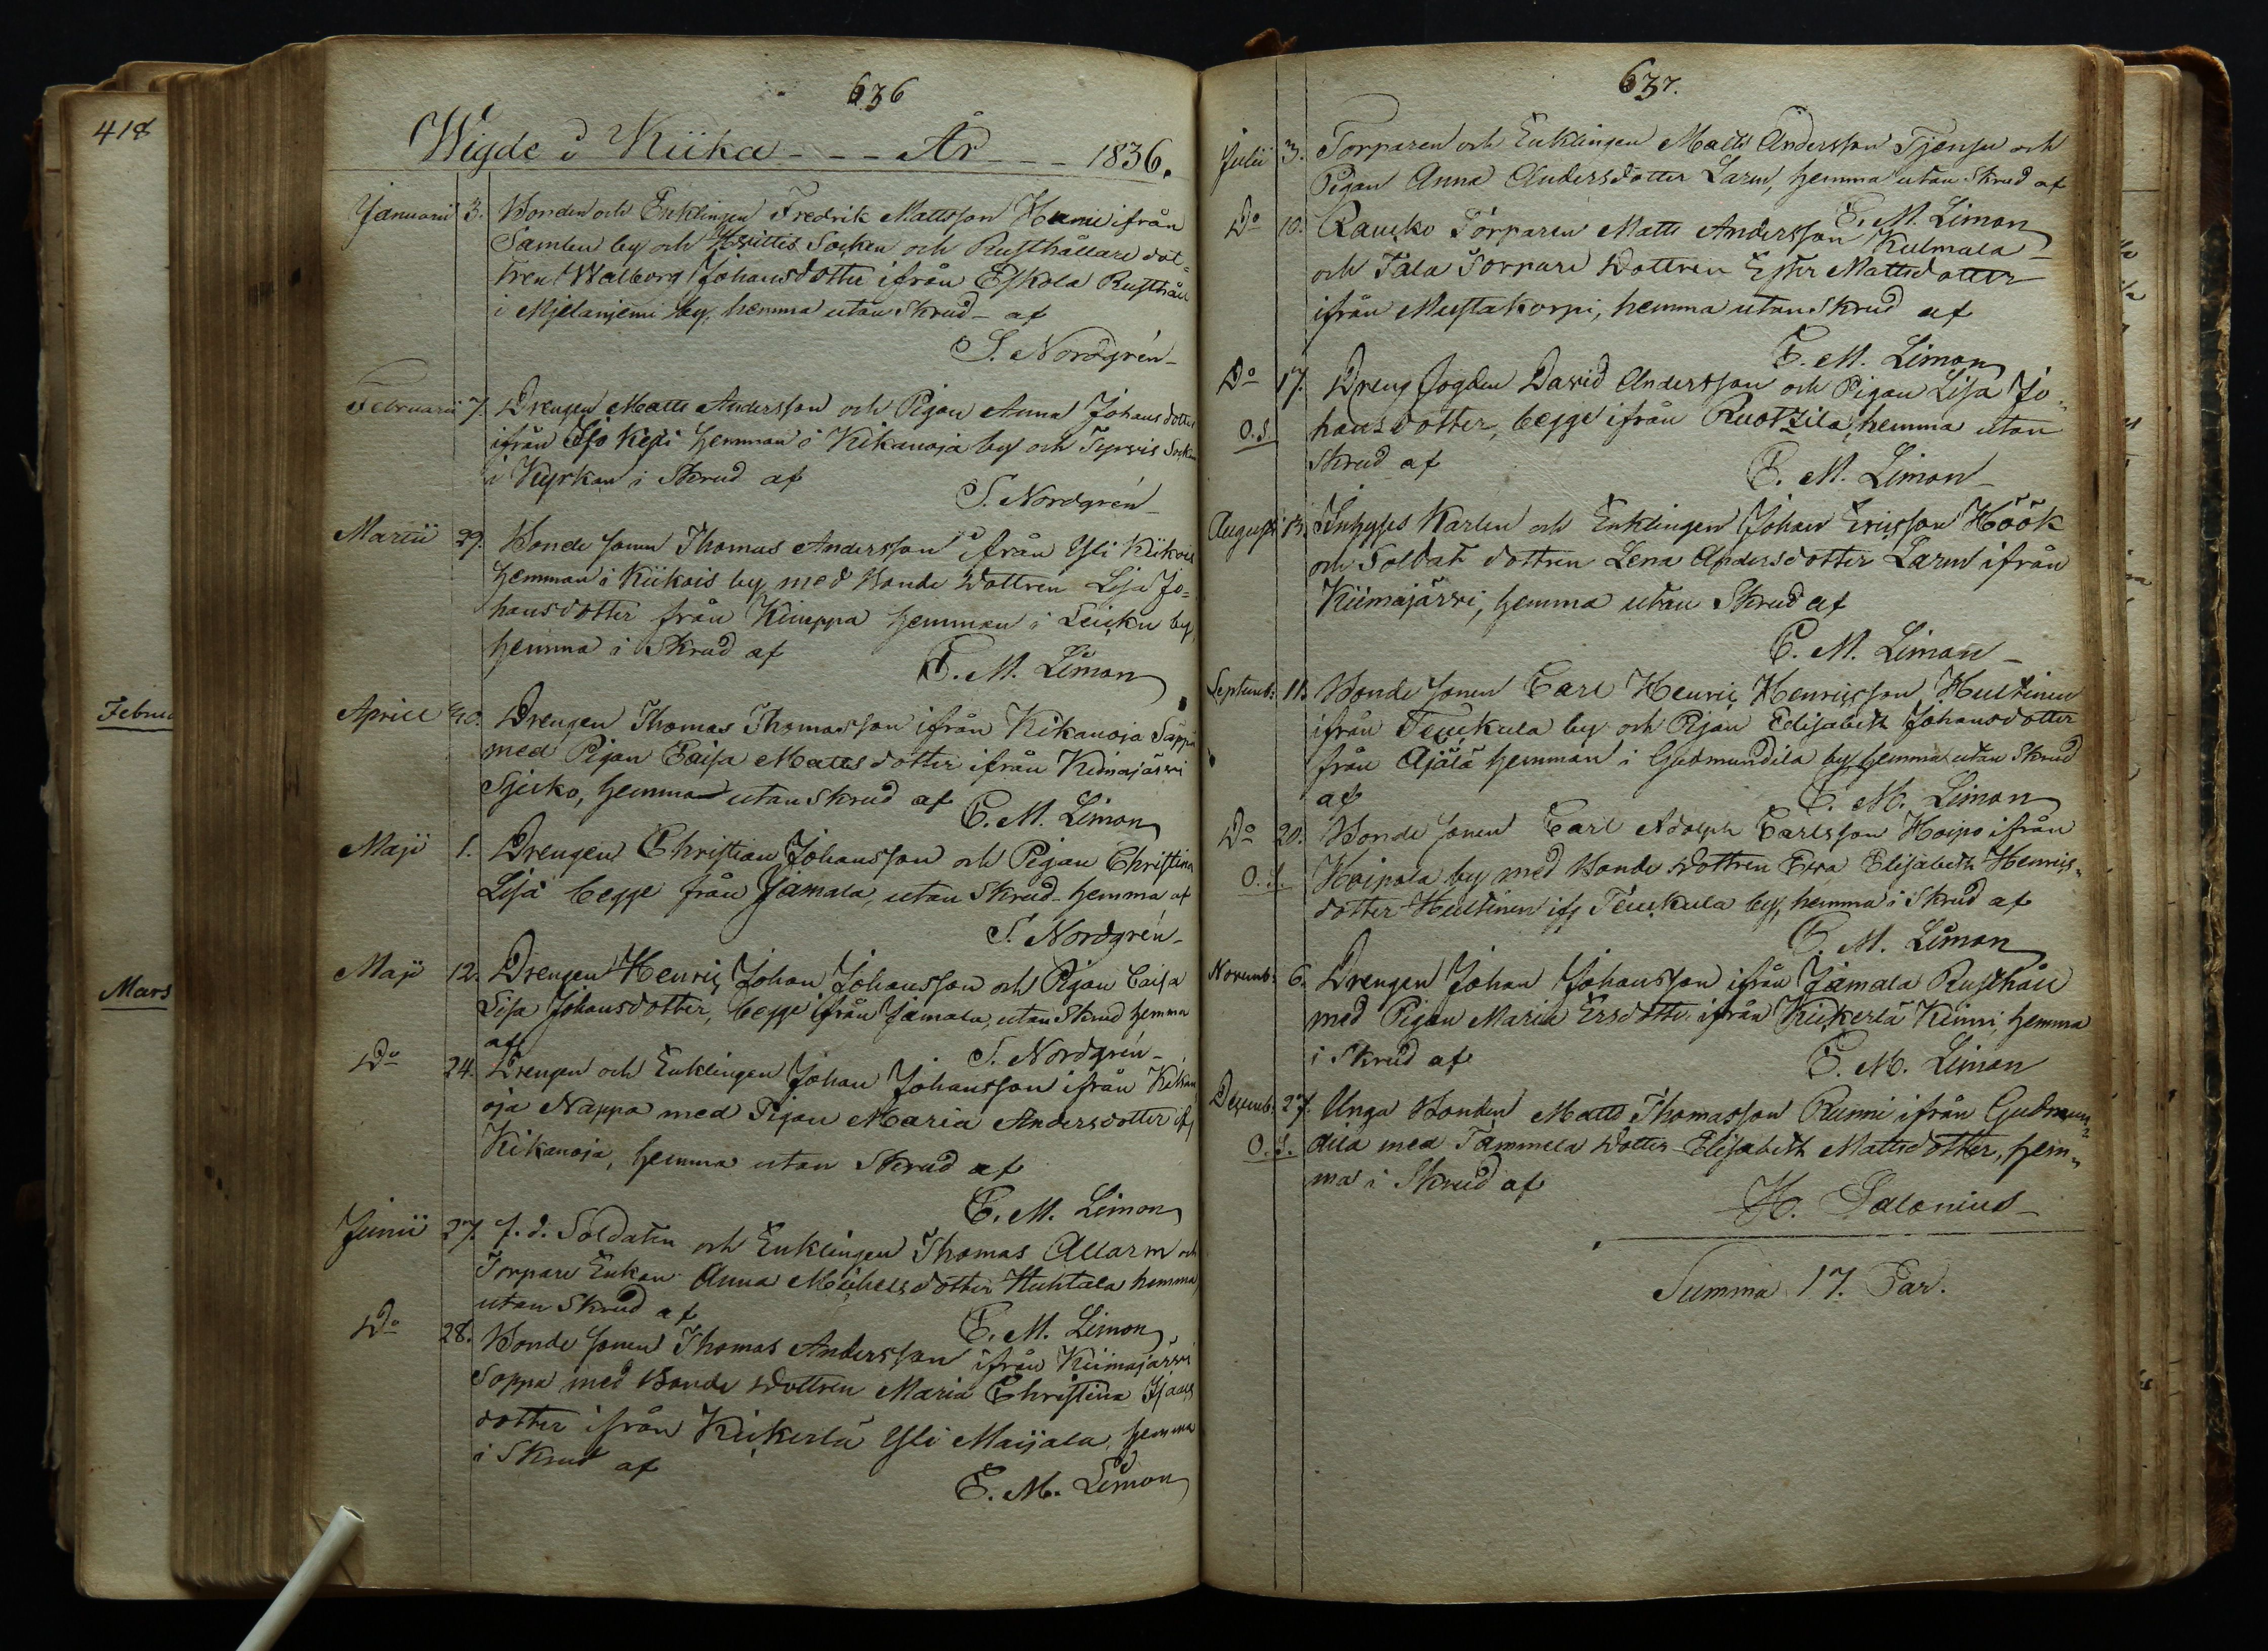 418
Februa
Mars
636
Wigde i Kiika - - - År - - - 1836.
Januarii 3. Bonden och Enklingen Fredrik Mattsson Hunni ifrån
Sambu by och Huittis Socken och Rusthållare dot-
tren Walborg Johansdotter ifrån Eskola Rusthåll
i Mjelanjemi by, hemma utan Skrud af
S. Nordgrén
Februarii 7. Drengen Matts Andersson och Pigan Anna Johansdotter
ifrån Iso Keßi hemman i Kikanoja by och Tyrvis Socken
i Kyrkan i Skrud af
S. Nordgrén
Martii 29. Bonde sonen Thomas Andersson ifrån Yli Kiikois
hemman i Kiikois by, med Bonde Dottren Lisa Jo=
hansdotter från Kiuppa hemman i Leiku by,
hemma i Skrud af
E. M. Limon
Aprill 10. Drengen Thomas Thomasson ifrån Kikanoja Säppi
med Pigan Caisa Mattsdotter ifrån Kimajärvi
Sjuko, hemma utan Skrud af
E. M. Limon
Maji 1. Drengen Christian Johansson och Pigan Christina
Lisa begge från Jamala, utan Skrud hemma af
S. Nordgrén
Maji 12. Drengen Henric Johan Johansson och Pigan Caisa
Lisa Johansdotter, begge ifrån Jamala, utan Skrud hemma
af
S. Nordgrén
Do 24. Drengen och Enklingen Johan Johansson ifrån Kikan
oja Nappa med Pigan Maria Andersdotter ifr
Kikanoja, hemma utan Skrud af
E. M. Limon
Junii 27. f. d. Soldaten och Enklingen Thomas Allarm och
Torpare Enkan Anna Michelsdotter Huhtala hemma
utan Skrud af
E. M. Limon
Do 28. Bonde sonen Thomas Andersson ifrån Kiimajärvi
Soppa med Bonde Dottren Maria Christina Isaacs
dotter ifrån Kiikerlä Yli Maijala, hemma
i Skrud af
E. M. Limon
637.
Julii 3. Torparen och Enklingen Matts Andersson Tjensu och
Pigan Anna Andersdotter Larm, hemma utan Skrud af
E. M. Limon
Do 10. Raucko Torparen Matts Andersson Kulmala
och Tala Torpare Dottren Ester Mattsdotter
ifrån Mustakorpi, hemma utan Skrud af
E. M. Limon
Do 17. Dreng fogden David Andersson och Pigan Lisa Jo=
O.S. hansdotter, begge ifrån Ruotzila, hemma utan
Skrud af
E. M. Limon
Augusti 13. Inhyses Karlen och Enklingen Johan Ericsson Höök
och Soldat dottren Lena Andersdotter Larm ifrån
Kiimajärvi, hemma utan Skrud af
E. M. Limon
Septemb: 11. Bonde Sonen Carl Henric Henricsson Hultinen
ifrån Teukula by och Pigan Elisabeth Johansdotter
från Ajälä hemman i Gudmundila by, hemma utan Skrud
af
E. M. Limon
Do 20. Bonde Sonen Carl Adolph Carlsson Hoipo ifrån
O.S. Hoipola by med Bonde Dottren Eva Elisabeth Henrics=
dotter Hultinen ifr Teukula by, hemma i Skrud af
E. M. Limon
Novemb: 6. Drengen Johan Johansson ifrån Jamala Rusthåll
med Pigan Maria Ersdotter ifrån Kiikerlä Kinni, hemma
i Skrud af
E. M. Limon
Decemb. 27. Unga Bonden Matts Thomasson Runni ifrån Gudmun=
O.S. dila med Tammela Dotter Elisabeth Mattsdotter, hem=
ma i Skrud af
H. Salonius
Summa 17. Par.